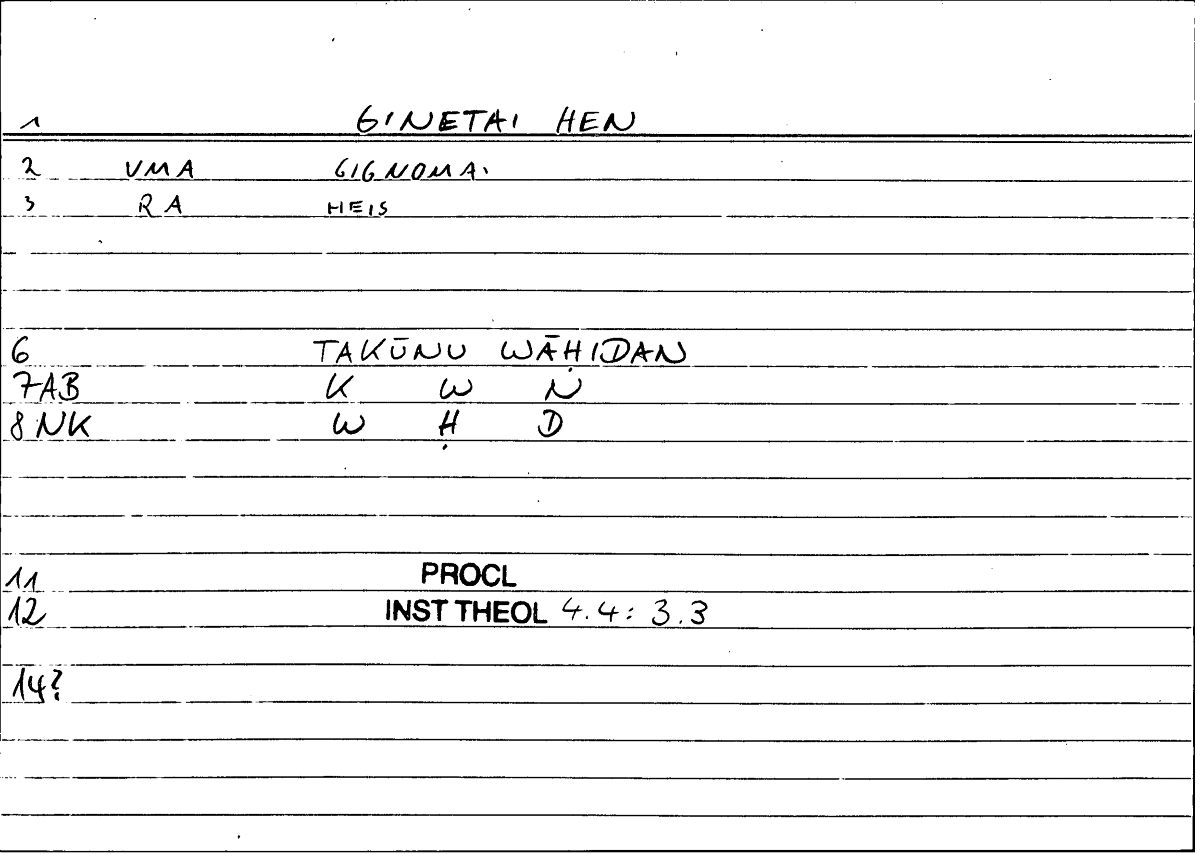 1 GINETAI HEN
2 VMA GIGNOMAI
3 RA HEIS
6 TAKŪNU WĀḤIDAN
7AB K W N
8NK W Ḥ D
11 PROCL
12 INST THEOL 4.4: 3.3
14?